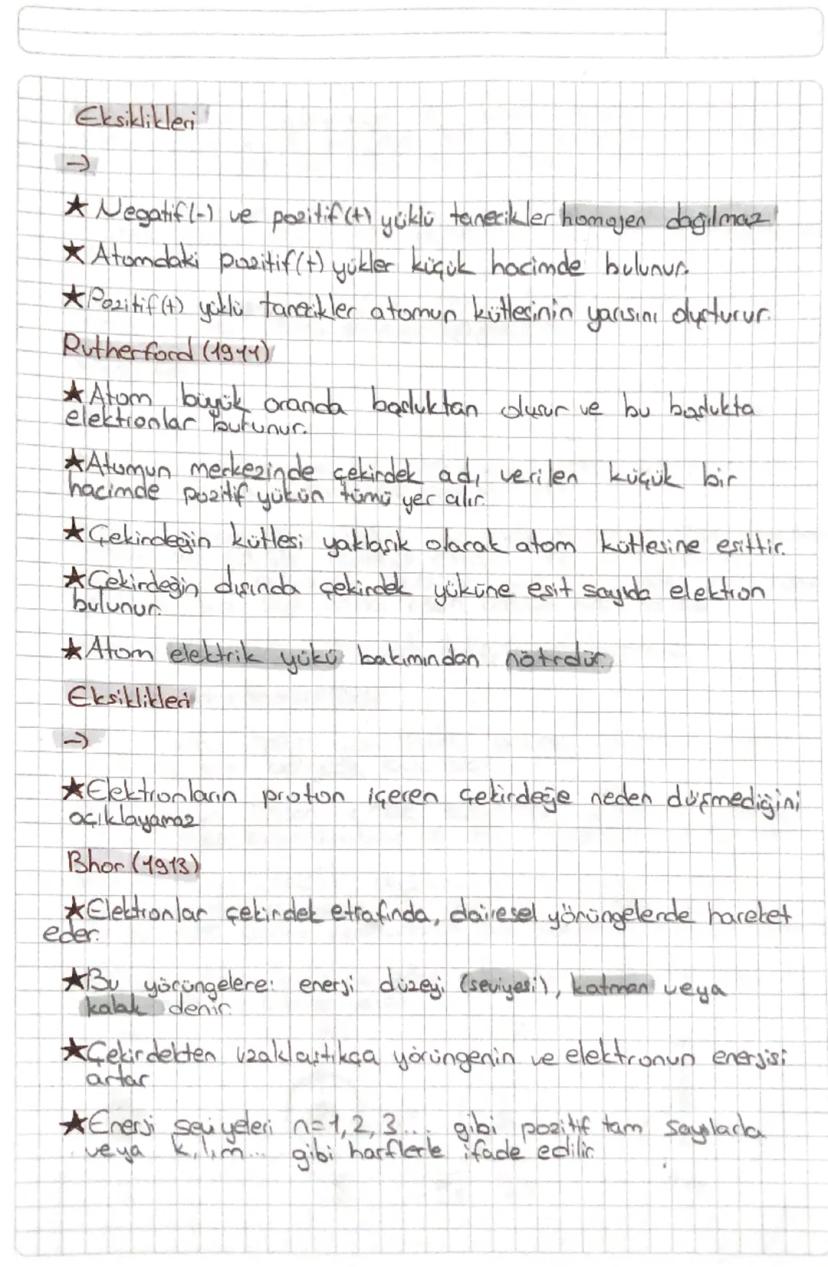 Eksiklikleri
→
★ Negatif(-) ve pozitif(+) yüklü tanecikler homojen dağılmaz
★ Atomdaki pozitif(+) yükler küçük hacimde bulunur.
★ Pozitif(+) yüklü tanecikler atomun kütlesinin yarısını oluşturur.
Rutherford (1911)
★ Atom büyük oranda boşluktan oluşur ve bu boşlukta
elektronlar bulunur.
★ Atomun merkezinde çekirdek adı verilen küçük bir
hacimde pozitif yükün tümü yer alır.
★ Çekirdeğin kütlesi yaklaşık olarak atom kütlesine eşittir.
★ Çekirdeğin dışında çekirdek yüküne eşit sayıda elektron
bulunur.
★ Atom elektrik yükü bakımından nötrdür.
Eksiklikleri
→
★ Elektronların proton içeren çekirdeğe neden düşmediğini
açıklayamaz
Bhor (1913)
★ Elektronlar çekirdek etrafında, dairesel yörüngelerde hareket
eder.
★ Bu yörüngelere: enerji düzeyi (seviyesi), katman veya
kabak denir.
★ Çekirdekten uzaklaştıkça yörüngenin ve elektronun enerjisi
artar
★ Enerji seviyeleri n=1, 2, 3... gibi pozitif tam sayılarla
veya k, l, m... gibi harflerle ifade edilir.